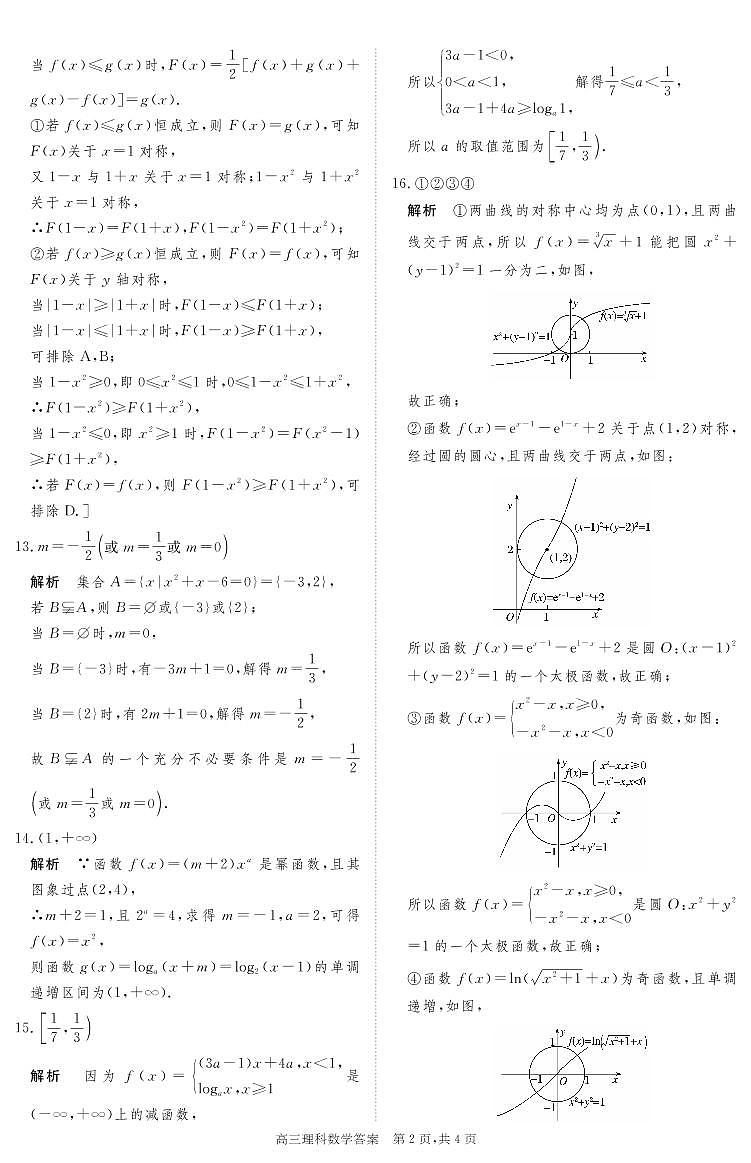 当 f(x)≤g(x)时,F(x)=1/2[f(x)+g(x)+
g(x)-f(x)]=g(x).
①若 f(x)≤g(x)恒成立,则 F(x)=g(x),可知
F(x)关于 x=1 对称,
又 1-x 与 1+x 关于 x=1 对称;1-x² 与 1+x²
关于 x=1 对称,
∴F(1-x)=F(1+x),F(1-x²)=F(1+x²);
②若 f(x)≥g(x)恒成立,则 F(x)=f(x),可知
F(x)关于 y 轴对称,
当|1-x|≥|1+x|时,F(1-x)≤F(1+x);
当|1-x|≤|1+x|时,F(1-x)≥F(1+x),
可排除 A,B;
当 1-x²≥0,即 0≤x²≤1 时,0≤1-x²≤1+x²,
∴F(1-x²)≥F(1+x²),
当 1-x²≤0,即 x²≥1 时,F(1-x²)=F(x²-1)
≥F(1+x²),
∴若 F(x)=f(x),则 F(1-x²)≥F(1+x²),可
排除 D.]
13.m=-1/2(或 m=1/3或 m=0)
解析 集合 A={x|x²+x-6=0}={-3,2},
若 B⫋A,则 B=∅或{-3}或{2};
当 B=∅时,m=0,
当 B={-3}时,有-3m+1=0,解得 m=1/3,
当 B={2}时,有 2m+1=0,解得 m=-1/2,
故 B⫋A 的一个充分不必要条件是 m=-1/2
(或 m=1/3或 m=0).
14.(1,+∞)
解析 ∵函数 f(x)=(m+2)xᵃ 是幂函数,且其
图象过点(2,4),
∴m+2=1,且 2ᵃ=4,求得 m=-1,a=2,可得
f(x)=x²,
则函数 g(x)=logₐ(x+m)=log₂(x-1)的单调
递增区间为(1,+∞).
15.[1/7,1/3)
解析 因为 f(x)={(3a-1)x+4a,x<1, logₐx,x≥1 是
(-∞,+∞)上的减函数,
所以{3a-1<0, 0<a<1, 3a-1+4a≥logₐ1, 解得1/7≤a<1/3,
所以 a 的取值范围为[1/7,1/3).
16.①②③④
解析 ①两曲线的对称中心均为点(0,1),且两曲
线交于两点,所以 f(x)=∛x+1 能把圆 x²+
(y-1)²=1 一分为二,如图,
y
f(x)=∛x+1
x²+(y-1)²=1
1
-1 O 1 x
故正确;
②函数 f(x)=eˣ⁻¹-e¹⁻ˣ+2 关于点(1,2)对称,
经过圆的圆心,且两曲线交于两点,如图:
y
(x-1)²+(y-2)²=1
2
(1,2)
f(x)=eˣ⁻¹-e¹⁻ˣ+2
O 1 x
所以函数 f(x)=eˣ⁻¹-e¹⁻ˣ+2 是圆 O:(x-1)²
+(y-2)²=1 的一个太极函数,故正确;
③函数 f(x)={x²-x,x≥0, -x²-x,x<0 为奇函数,如图:
y
1 f(x)={x²-x,x≥0 -x²-x,x<0
-1 O 1 x
-1 x²+y²=1
所以函数 f(x)={x²-x,x≥0, -x²-x,x<0 是圆 O:x²+y²
=1 的一个太极函数,故正确;
④函数 f(x)=ln(√(x²+1)+x)为奇函数,且单调
递增,如图,
y
1 f(x)=ln(√(x²+1)+x)
-1 O 1 x
-1 x²+y²=1
高三理科数学答案 第 2 页,共 4 页